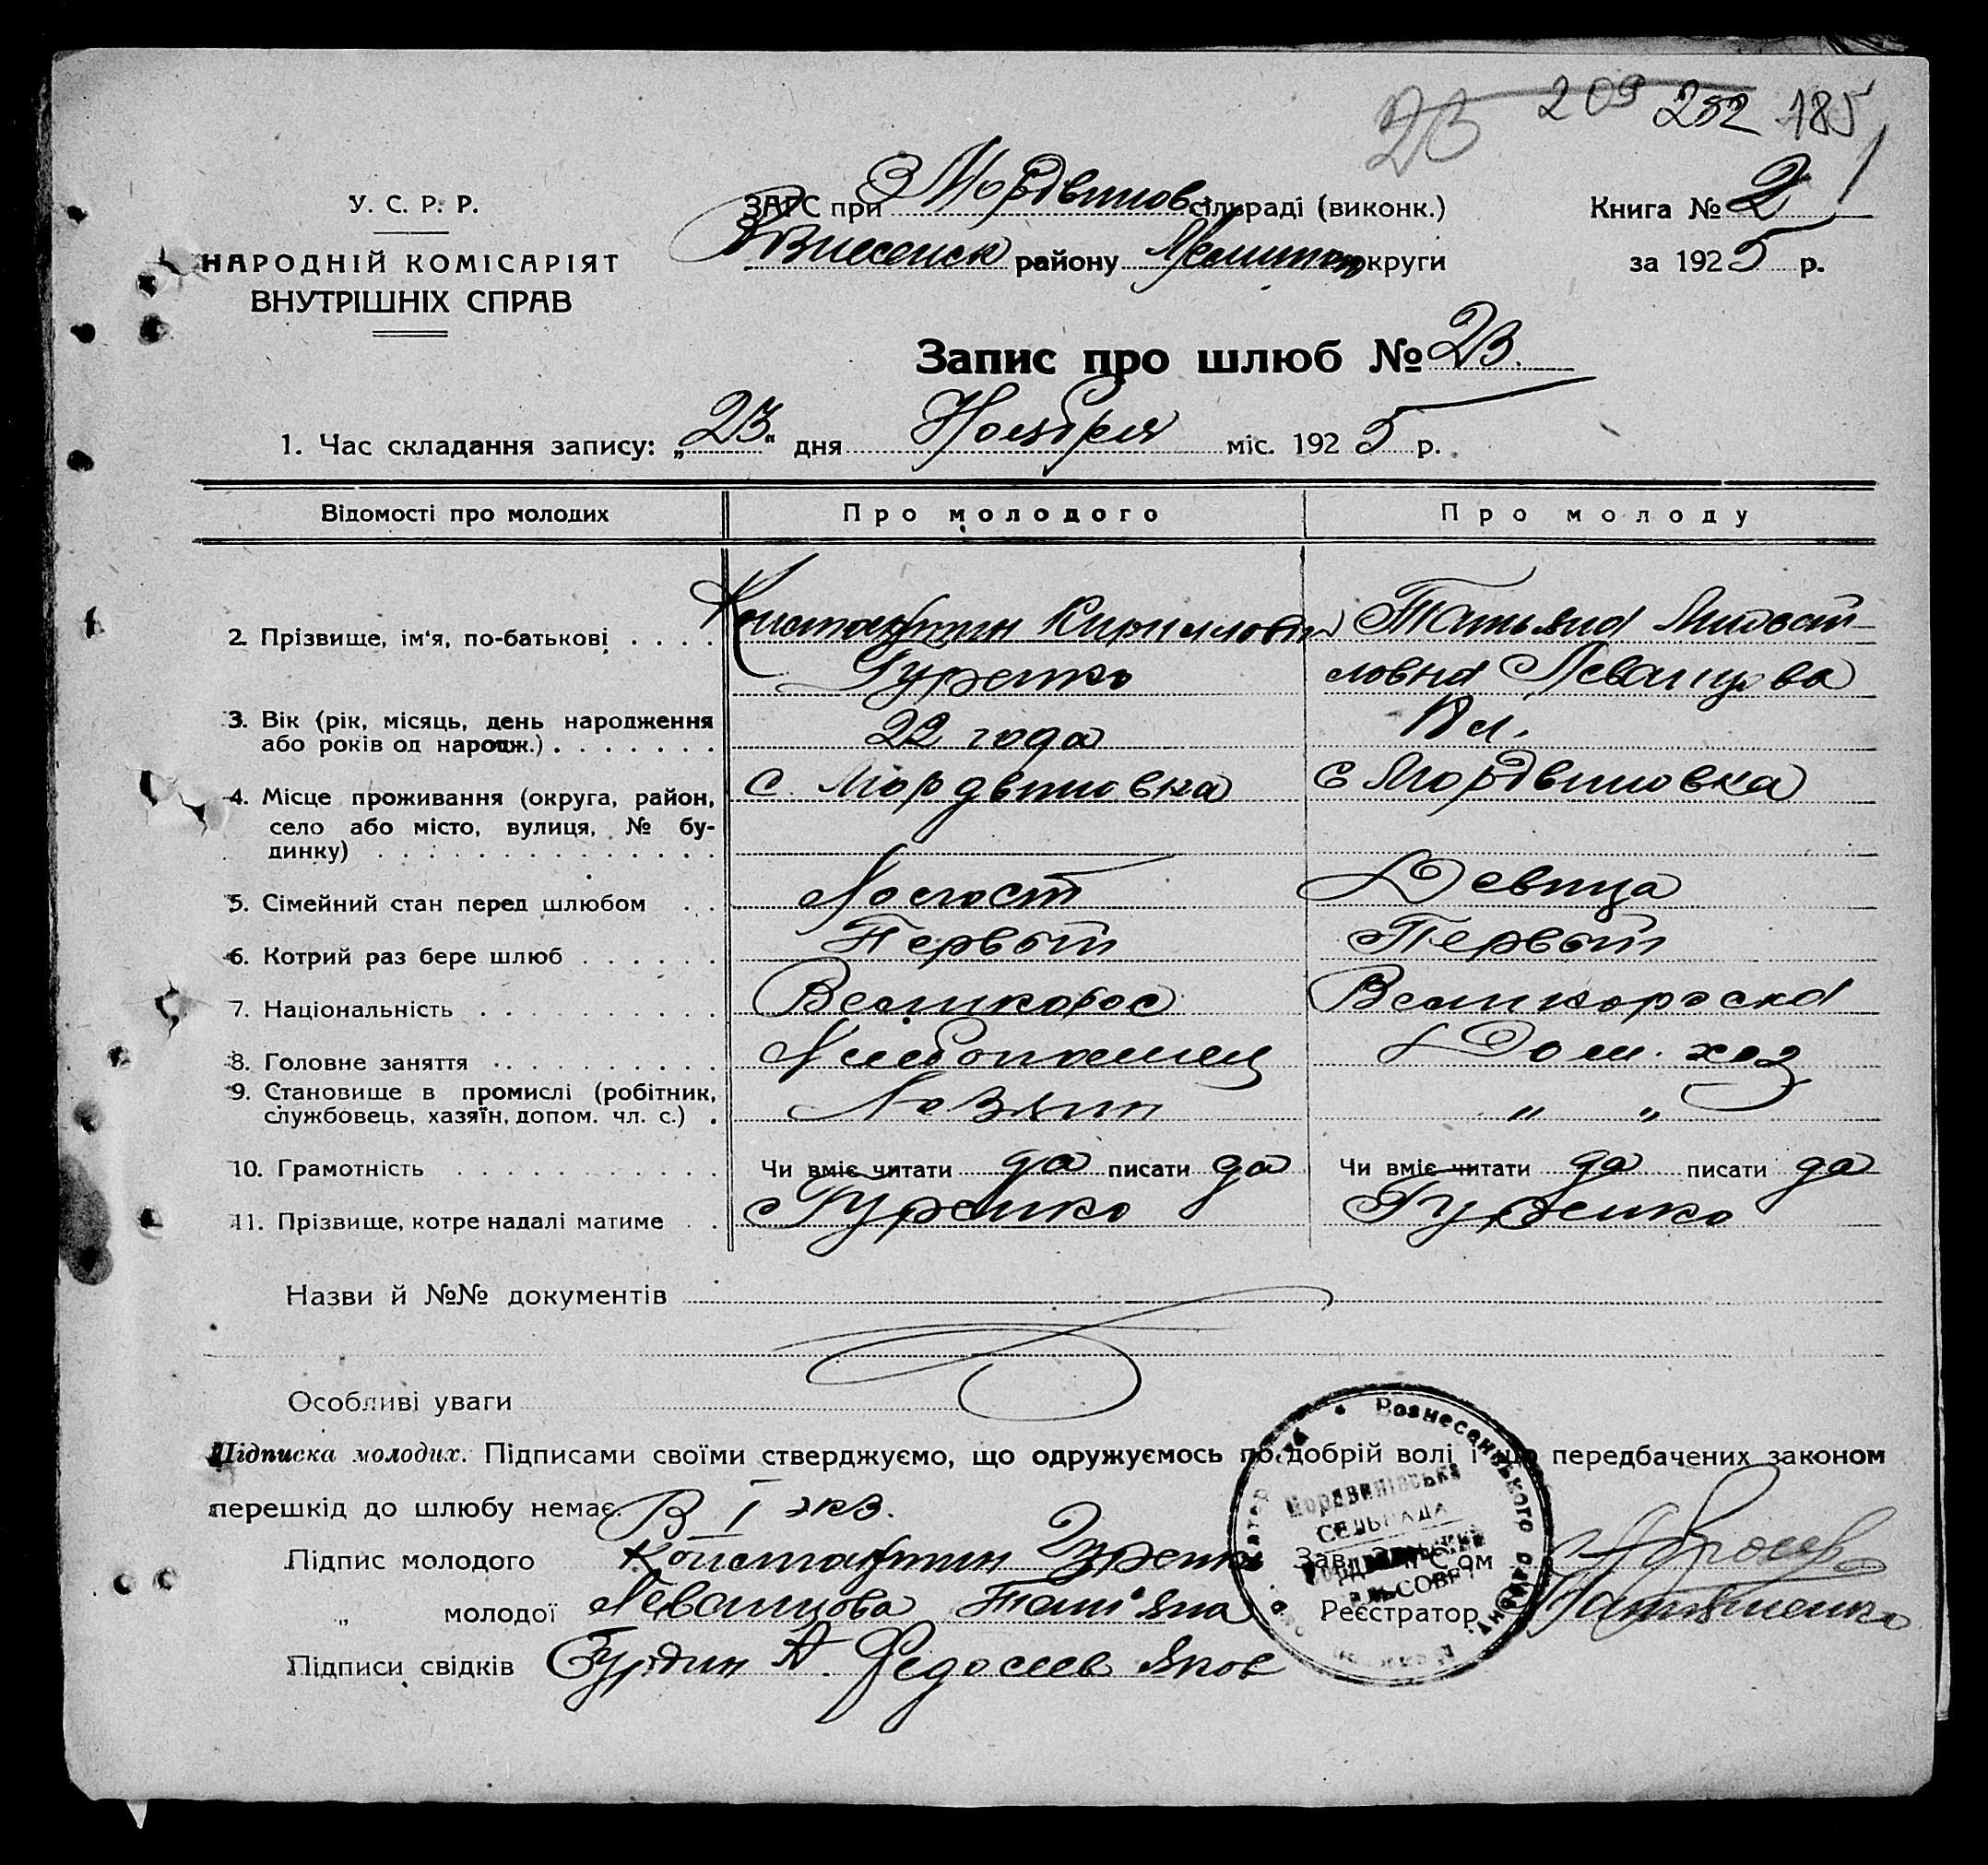 23 209 202 185
У. С. Р. Р.
НАРОДНІЙ КОМІСАРІЯТ
ВНУТРІШНІХ СПРАВ
ЗАГС при Мордвинов сільраді (виконк.) Книга № 2
району Мелитоп округи за 1925 р.
Запис про шлюб № 23.
1. Час складання запису: „23" дня Ноября міс. 1925 р.
Відомості про молодих Про молодого Про молоду
2. Прізвище, ім'я, по-батькові Константин Кириллович Татьяна
Гуренко ловна Левашова
3. Вік (рік, місяць, день народження
або років од народж.) 22 года 18 л.
4. Місце проживання (округа, район, с. Мордвиновка с Мордвиновка
село або місто, вулиця, № бу-
динку)
5. Сімейний стан перед шлюбом Холост Девица
6. Котрий раз бере шлюб Первый Первый
7. Національність Великорос Великороска
8. Головне заняття Хлебопашец Дом. хоз
9. Становище в промислі (робітник,
службовець, хазяїн, допом. чл. с.) Хозяин " "
10. Грамотність Чи вміє читати да писати да Чи вміє читати да писати да
11. Прізвище, котре надалі матиме Гуренко Гуренко
Назви й №№ документів
Особливі уваги
Підписка молодих. Підписами своїми стверджуємо, що одружуємось по добрій волі і що передбачених законом
перешкід до шлюбу немає. В I экз.
Підпис молодого Константин Гуренко Зав. ЗАГС'ом
„ молодої Левашова Тат'яна Реєстратор
Підписи свідків А. Федосеев Яков
Вознесенського
Мордвинівська
СЕЛЬРАДА